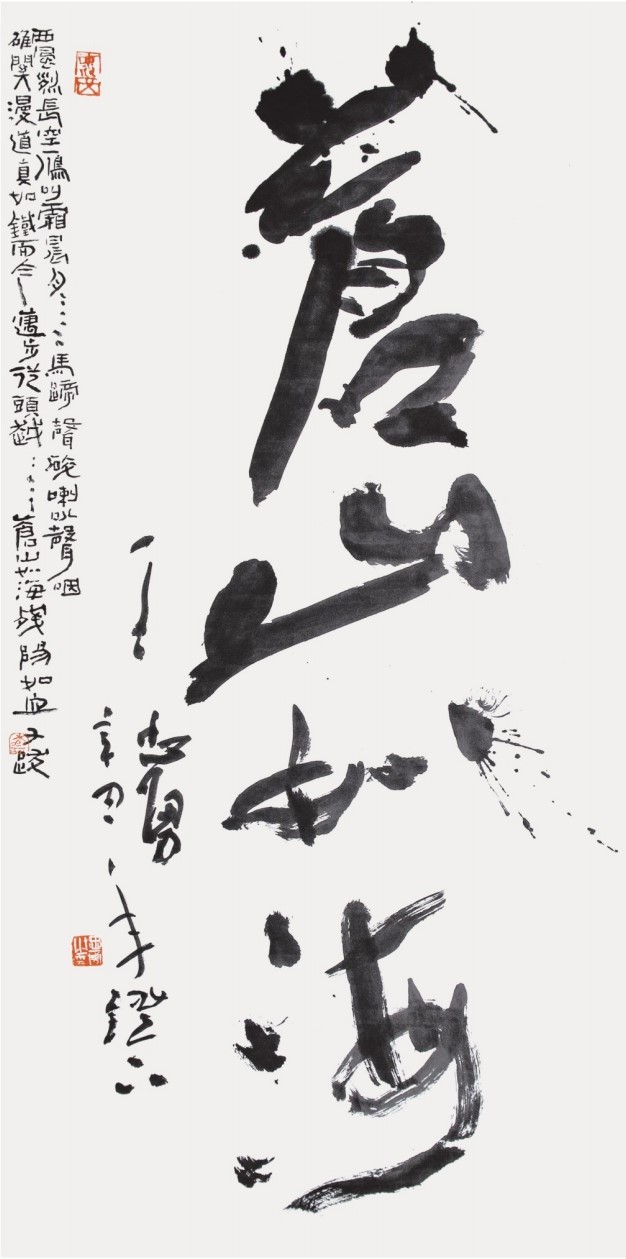 蒼山如海
王志勇
辛丑年鐙下
西風烈長空雁叫霜晨月……馬蹄聲碎喇叭聲咽
雄關漫道真如鐵而今邁步從頭越……蒼山如海殘陽如血又跋